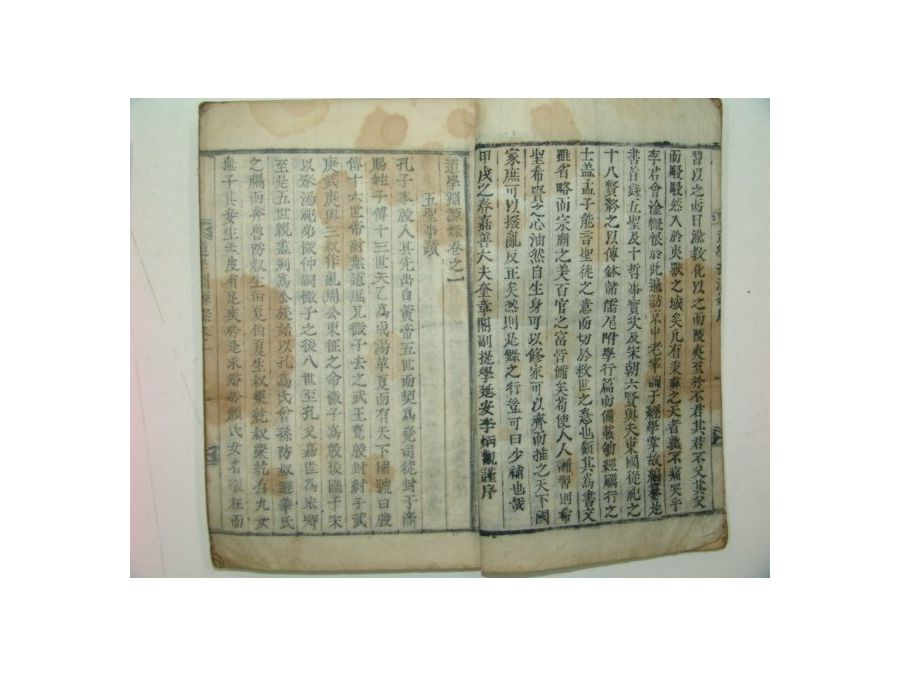 習以之而日滋敎化以之而陵夷至於不君其君不父其父
而駸駸然入於夷獸之域矣凡有秉彝之天者孰不痛哭乎
李君會淦慨恨於此遍訪京中老宰
經學堂故編纂是
書首錄五聖及十哲事實次及宋朝六賢與夫東國從祀之
十八賢終之以傳鉢諸儒尾附學行篇而備載勅經礪行之
士盖孟子能言聖徒之意而切於救世之悉也顧其爲書文
雖省略而宗廟之美百官之富悖備矣苟使人人誦習則希
聖希賢之心油然自生身可以修家可以齊而推之天下國
家庶可以撥亂反正矣然則是錄之行豈可曰少補也哉
甲戌之春嘉善大夫奎章閣副提學延安李炳觀謹序
道學淵源錄卷之一
五聖事蹟
孔子本殷人其先出自黃帝五世而契爲堯司徒封于商
賜姓子傳十三世天乙爲成湯革夏而有天下國號曰殷
傳十六世帝紂無道庶兄微子去之武王克殷封紂子武
庚武庚與三叔作亂周公東征之命微子爲殷後國于宋
以奉湯祀弟微仲嗣微子之後八世至孔父嘉世爲宋卿
至是五世親盡別爲公族始以孔爲氏曾孫防叔避華氏
之禍而奔魯防叔生伯夏伯夏生叔梁紇叔梁紇有九女
無子其妾生孟皮有足疾於是求婚於顔氏女名徵在而